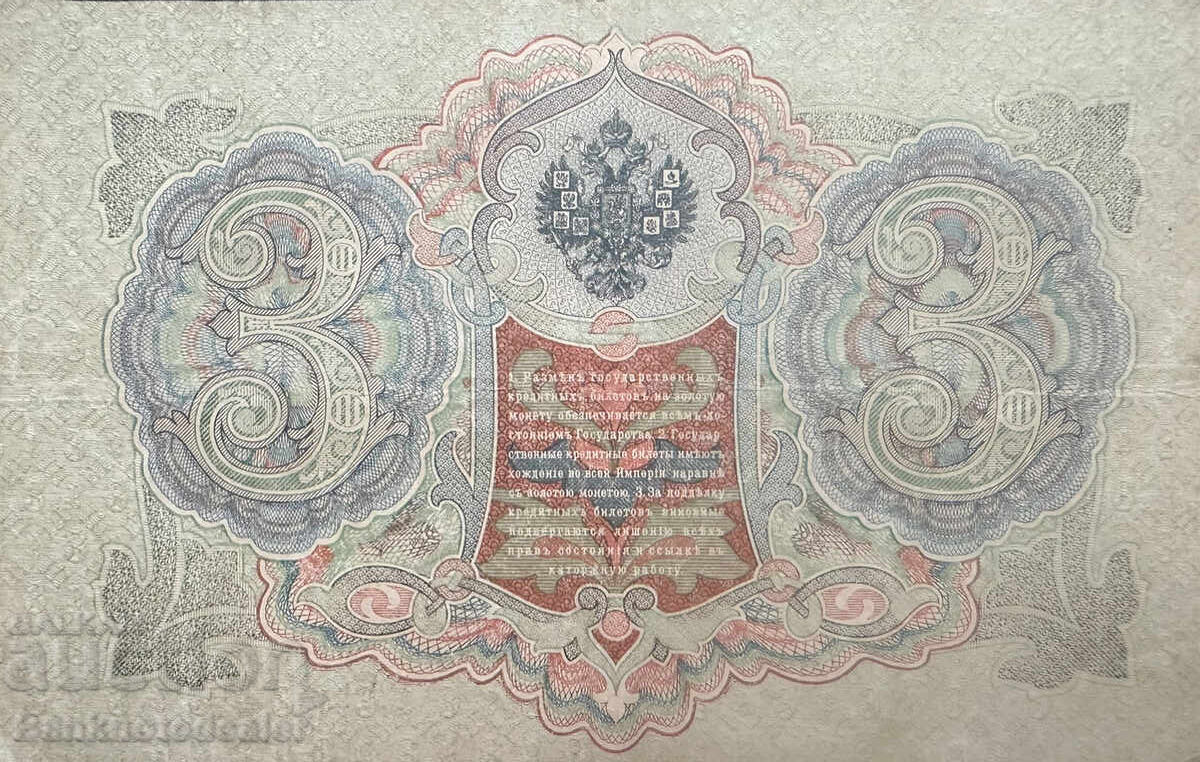 3
3
1. Размѣнъ Государственныхъ
кредитныхъ билетовъ на золотую
монету обезпечивается всѣмъ до-
стояніемъ Государства. 2. Государ
ственные кредитные билеты имѣютъ
хожденіе во всей Имперіи наравнѣ
съ золотою монетою. 3. За поддѣлку
кредитныхъ билетовъ виновные
подвергаются лишенію всѣхъ
правъ состоянія и ссылкѣ въ
каторжную работу.
Banknotodealer